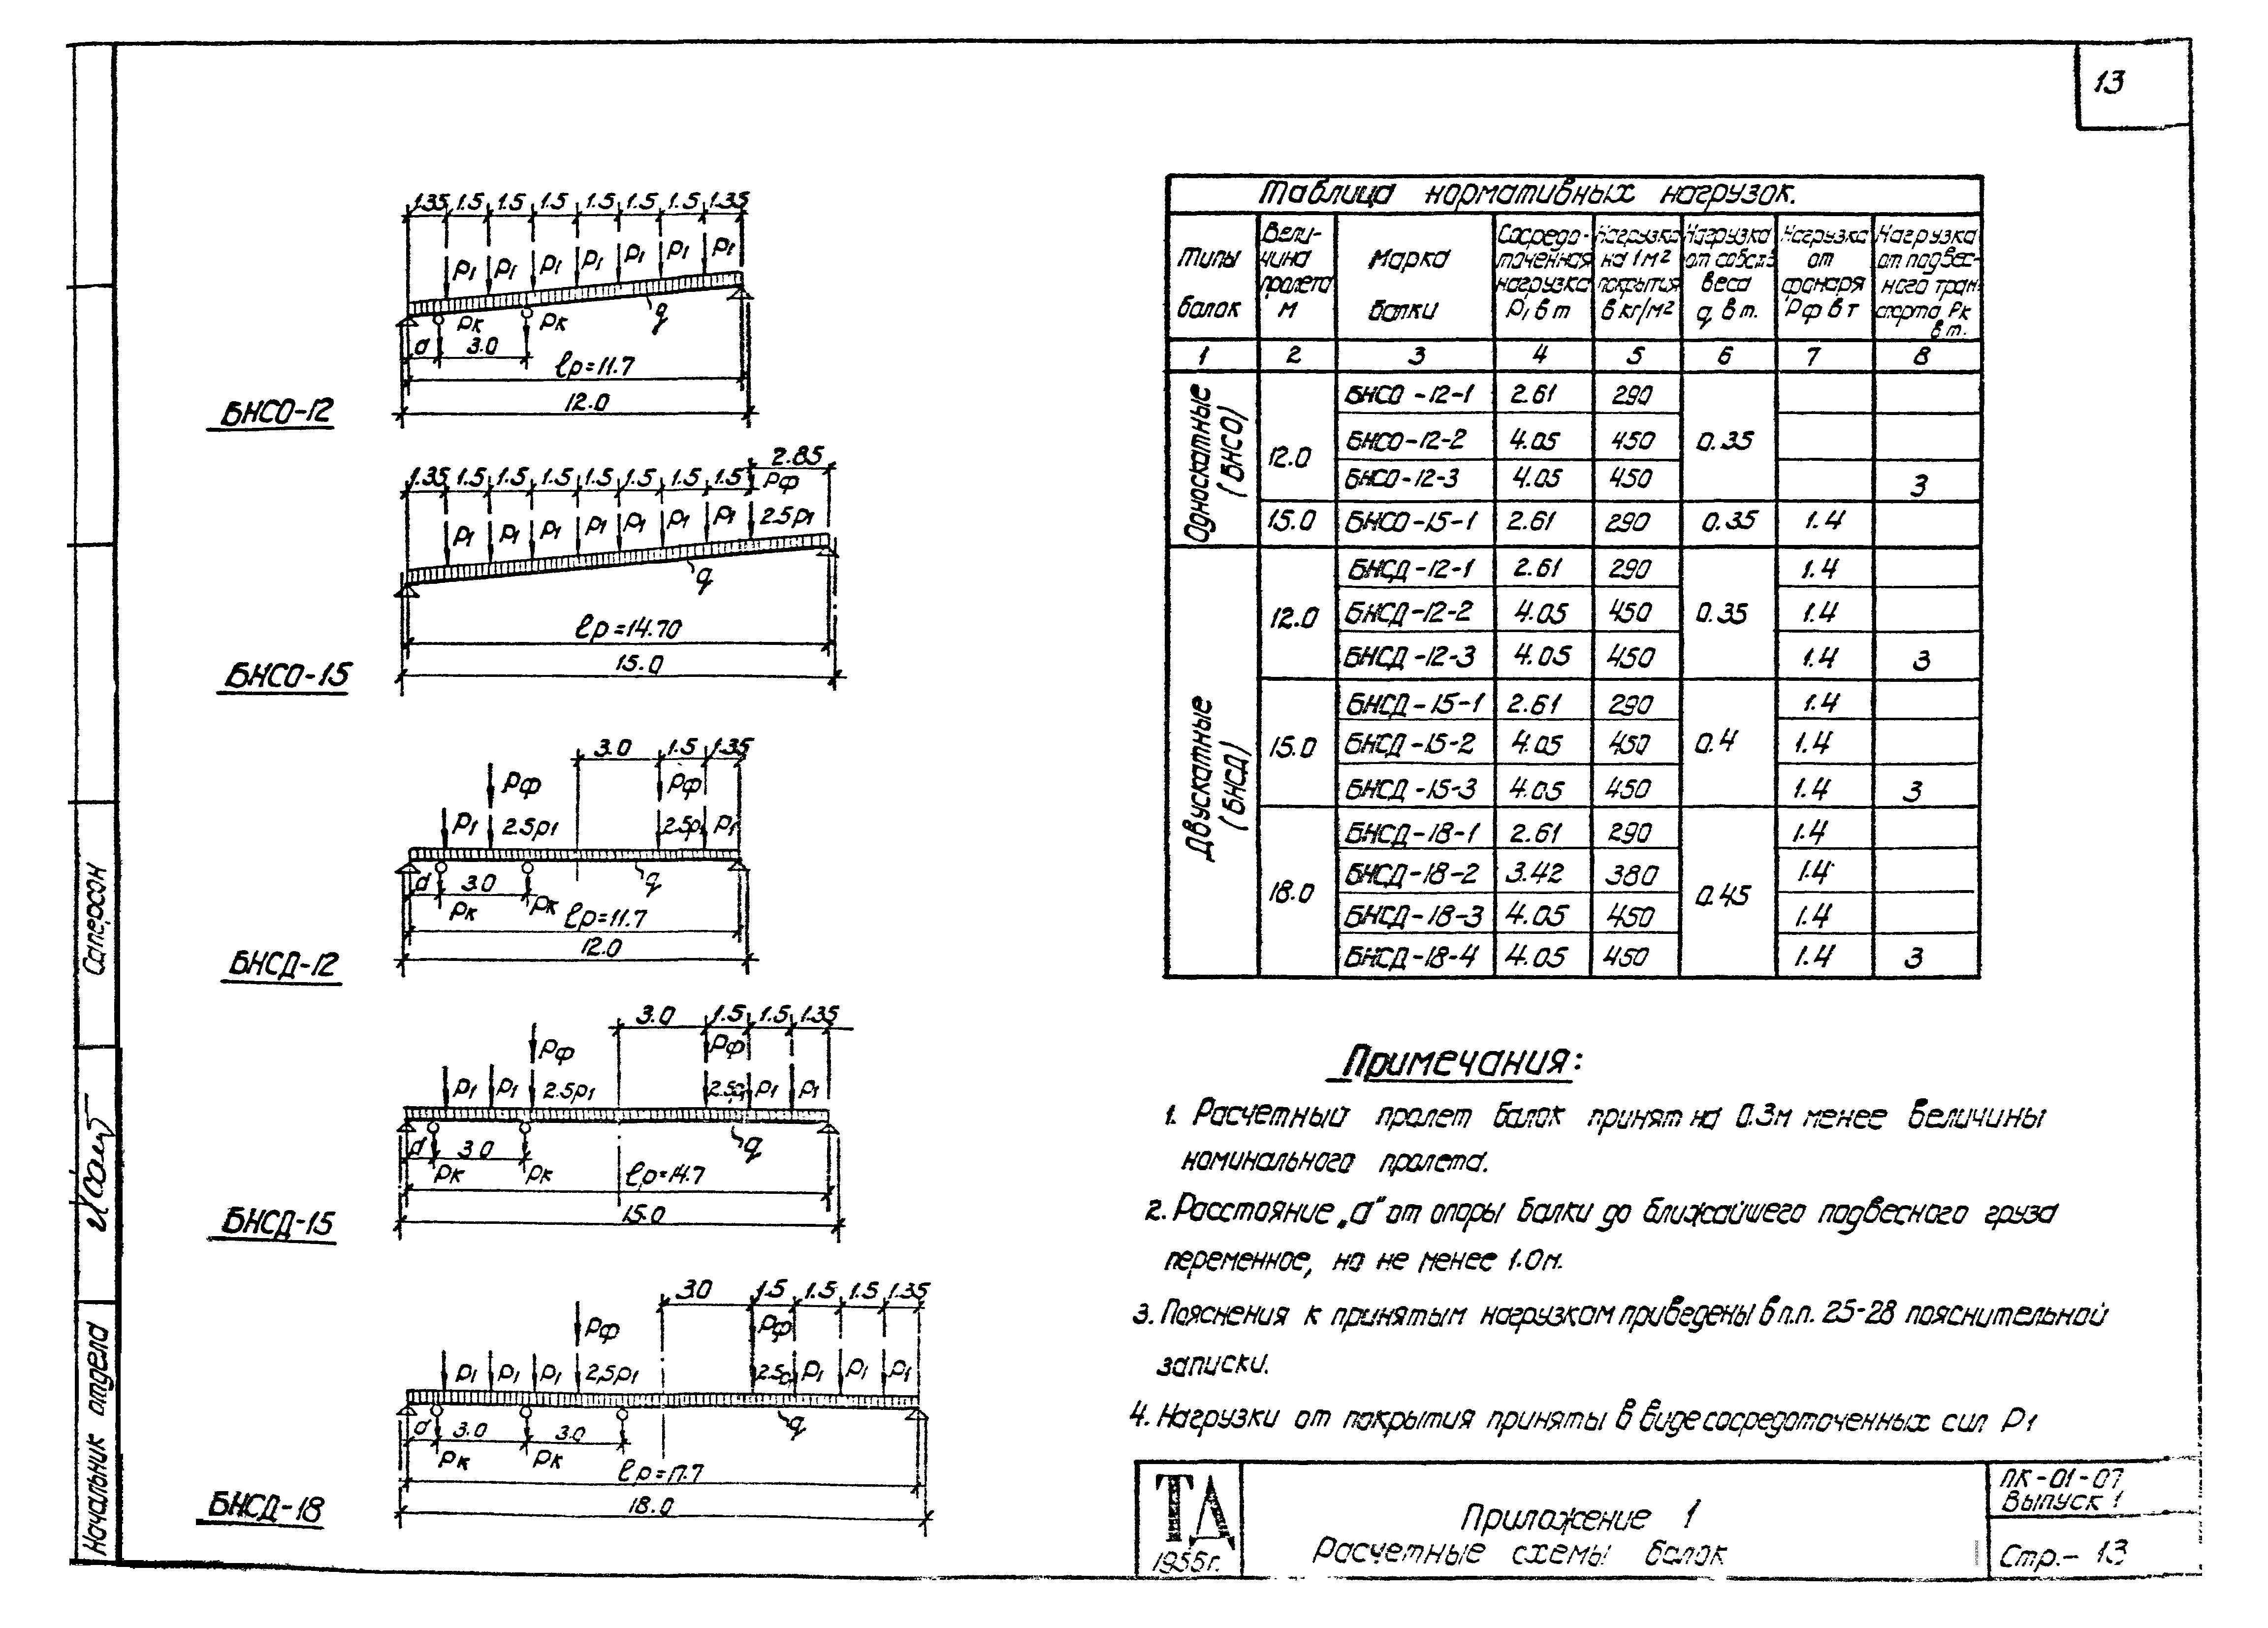 13
1.35 1.5 1.5 1.5 1.5 1.5 1.5 1.35
P1 P1 P1 P1 P1 P1 P1
Pк Pк q
a 3.0
ℓp=11.7
12.0
БНСО-12
2.85
1.35 1.5 1.5 1.5 1.5 1.5 1.5 1.5 Pф
P1 P1 P1 P1 P1 P1 P1 2.5P1
q
ℓp=14.70
15.0
БНСО-15
3.0 1.5 1.35
Pф Pф
P1 2.5P1 2.5P1 P1
a 3.0 q
Pк Pк ℓp=11.7
12.0
БНСД-12
3.0 1.5 1.5 1.35
Pф Pф
P1 P1 2.5P1 P1 P1
a 3.0 q
Pк Pк ℓp=14.7
15.0
БНСД-15
3.0 1.5 1.5 1.5 1.35
Pф Pф
P1 P1 P1 2,5P1 P1 P1 P1
a 3.0 3.0 q
Pк Pк ℓp=17.7
18.0
БНСД-18
Таблица нормативных нагрузок.
Типы балок
Вели-
чина
пролета
м
Марка балки
Сосредо-
точенная
нагрузка
P1 в т
Нагрузка
на 1м²
покрытия
в кг/м²
Нагрузка
от собств
веса
q в т.
Нагрузка
от
фонаря
Pф в т
Нагрузка
от подвес-
ного тран-
спорта Pк
в т.
1 2 3 4 5 6 7 8
Односкатные
(БНСО)
12.0 БНСО-12-1 2.61 290 0.35
БНСО-12-2 4.05 450
БНСО-12-3 4.05 450 3
15.0 БНСО-15-1 2.61 290 0.35 1.4
Двускатные
(БНСД)
12.0 БНСД-12-1 2.61 290 0.35 1.4
БНСД-12-2 4.05 450 1.4
БНСД-12-3 4.05 450 1.4 3
15.0 БНСД-15-1 2.61 290 0.4 1.4
БНСД-15-2 4.05 450 1.4
БНСД-15-3 4.05 450 1.4 3
18.0 БНСД-18-1 2.61 290 0.45 1.4
БНСД-18-2 3.42 380 1.4
БНСД-18-3 4.05 450 1.4
БНСД-18-4 4.05 450 1.4 3
Примечания:
1. Расчетный пролет балок принят на 0.3м менее величины
номинального пролета.
2. Расстояние „а" от опоры балки до ближайшего подвесного груза
переменное, но не менее 1.0м.
3. Пояснения к принятым нагрузкам приведены в п.п. 25-28 пояснительной
записки.
4. Нагрузки от покрытия приняты в виде сосредоточенных сил P1
ТА
1955г.
Приложение 1
Расчетные схемы балок
ПК-01-07
Выпуск 1
Стр.- 13
Саперсон
Начальник отдела